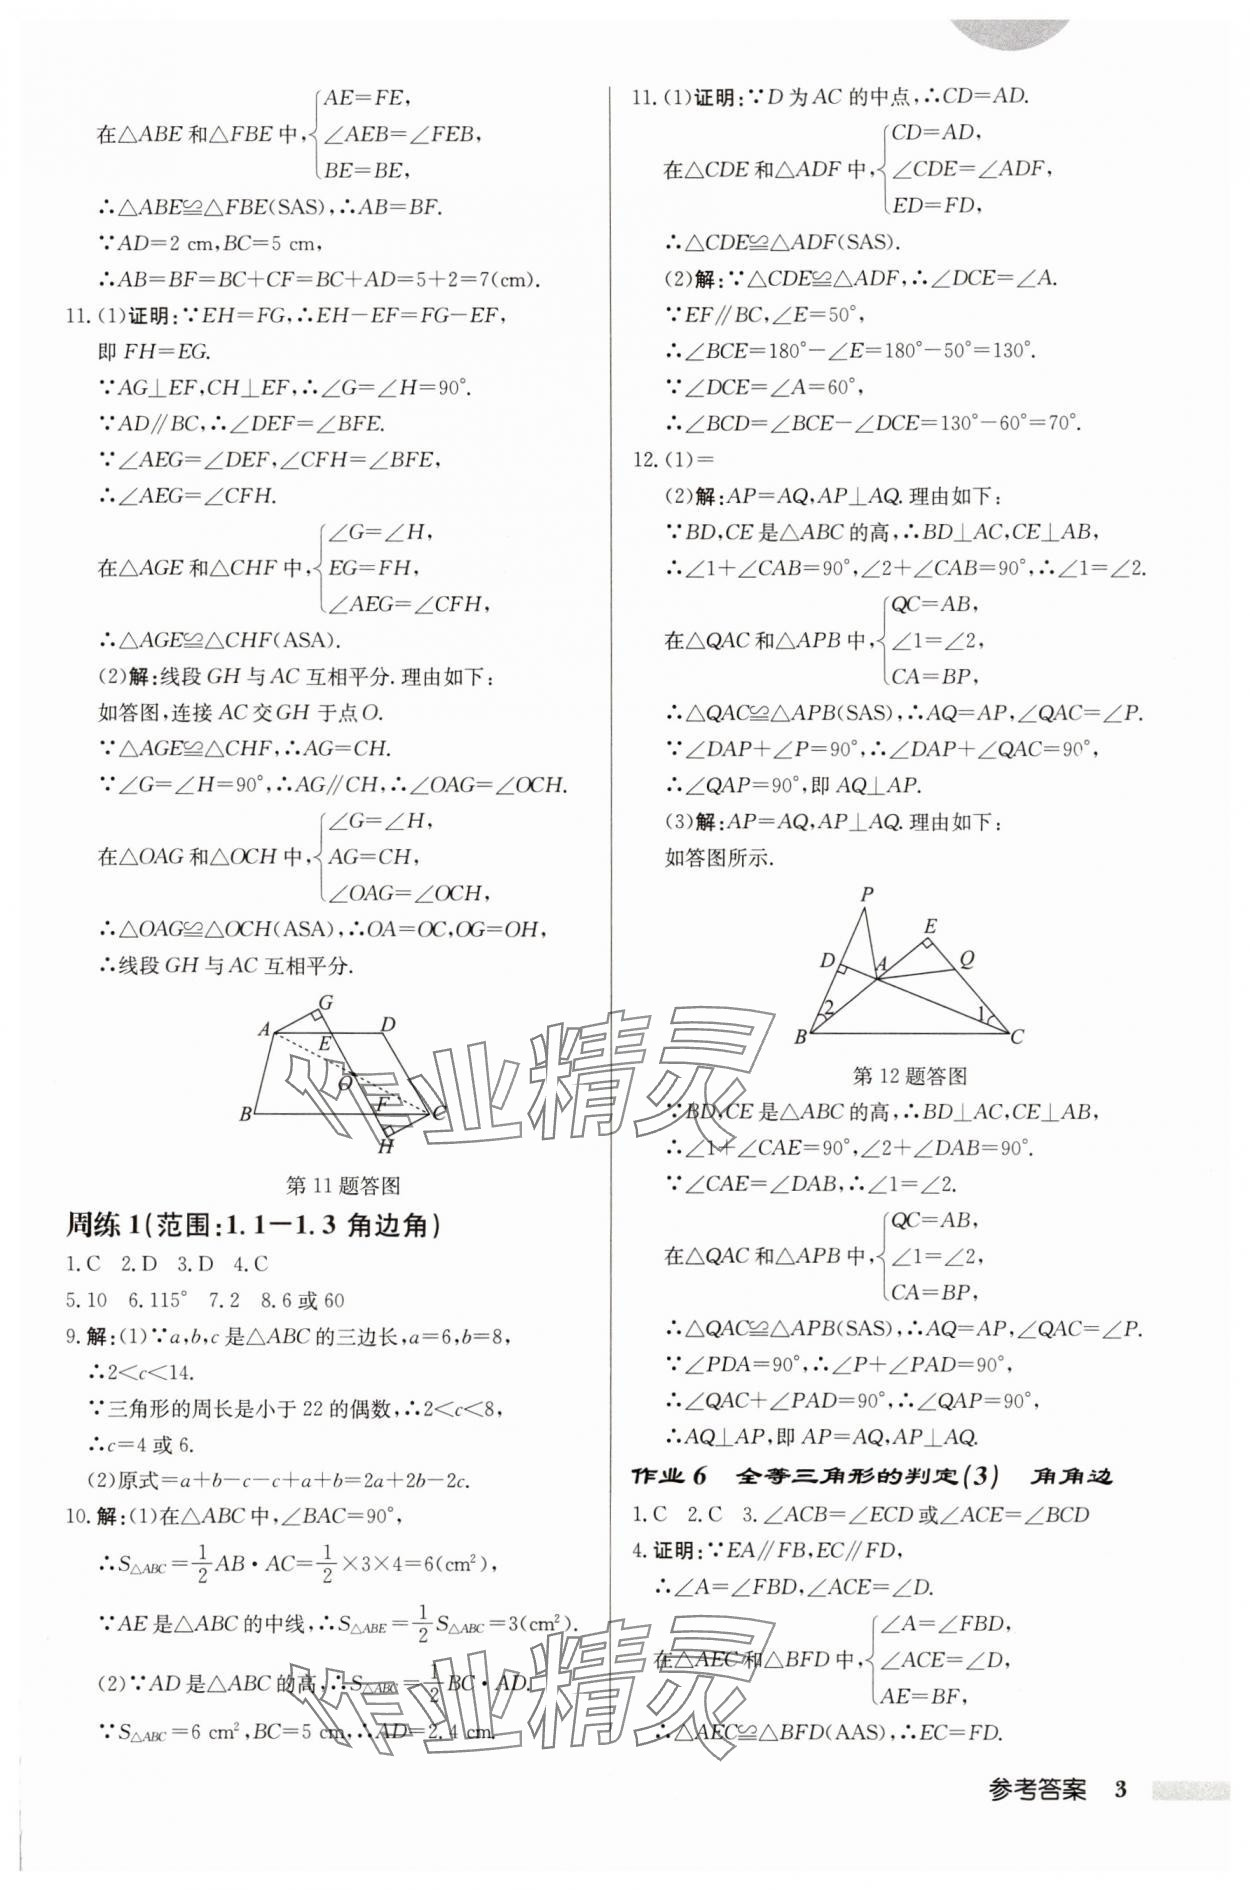 在△ABE 和△FBE 中,{AE=FE,
∠AEB=∠FEB,
BE=BE,
∴△ABE≌△FBE(SAS),∴AB=BF.
∵AD=2 cm,BC=5 cm,
∴AB=BF=BC+CF=BC+AD=5+2=7(cm).
11.(1)证明:∵EH=FG,∴EH-EF=FG-EF,
即 FH=EG.
∵AG⊥EF,CH⊥EF,∴∠G=∠H=90°.
∵AD∥BC,∴∠DEF=∠BFE.
∵∠AEG=∠DEF,∠CFH=∠BFE,
∴∠AEG=∠CFH.
在△AGE 和△CHF 中,{∠G=∠H,
EG=FH,
∠AEG=∠CFH,
∴△AGE≌△CHF(ASA).
(2)解:线段 GH 与 AC 互相平分.理由如下:
如答图,连接 AC 交 GH 于点 O.
∵△AGE≌△CHF,∴AG=CH.
∵∠G=∠H=90°,∴AG∥CH,∴∠OAG=∠OCH.
在△OAG 和△OCH 中,{∠G=∠H,
AG=CH,
∠OAG=∠OCH,
∴△OAG≌△OCH(ASA),∴OA=OC,OG=OH,
∴线段 GH 与 AC 互相平分.
G
A D
E
O
B F C
H
第 11 题答图
周练 1(范围:1.1-1.3 角边角)
1.C 2.D 3.D 4.C
5.10 6.115° 7.2 8.6 或 60
9.解:(1)∵a,b,c 是△ABC 的三边长,a=6,b=8,
∴2<c<14.
∵三角形的周长是小于 22 的偶数,∴2<c<8,
∴c=4 或 6.
(2)原式=a+b-c-c+a+b=2a+2b-2c.
10.解:(1)在△ABC 中,∠BAC=90°,
∴S△ABC=1/2 AB·AC=1/2×3×4=6(cm²),
∵AE 是△ABC 的中线,∴S△ABE=1/2 S△ABC=3(cm²).
(2)∵AD 是△ABC 的高,∴S△ABC=1/2 BC·AD.
∵S△ABC=6 cm²,BC=5 cm,∴AD=2.4 cm.
11.(1)证明:∵D 为 AC 的中点,∴CD=AD.
在△CDE 和△ADF 中,{CD=AD,
∠CDE=∠ADF,
ED=FD,
∴△CDE≌△ADF(SAS).
(2)解:∵△CDE≌△ADF,∴∠DCE=∠A.
∵EF∥BC,∠E=50°,
∴∠BCE=180°-∠E=180°-50°=130°.
∵∠DCE=∠A=60°,
∴∠BCD=∠BCE-∠DCE=130°-60°=70°.
12.(1)=
(2)解:AP=AQ,AP⊥AQ.理由如下:
∵BD,CE 是△ABC 的高,∴BD⊥AC,CE⊥AB,
∴∠1+∠CAB=90°,∠2+∠CAB=90°,∴∠1=∠2.
在△QAC 和△APB 中,{QC=AB,
∠1=∠2,
CA=BP,
∴△QAC≌△APB(SAS),∴AQ=AP,∠QAC=∠P.
∵∠DAP+∠P=90°,∴∠DAP+∠QAC=90°,
∴∠QAP=90°,即 AQ⊥AP.
(3)解:AP=AQ,AP⊥AQ.理由如下:
如答图所示.
P
E
D A Q
2 1
B C
第 12 题答图
∵BD,CE 是△ABC 的高,∴BD⊥AC,CE⊥AB,
∴∠1+∠CAE=90°,∠2+∠DAB=90°.
∵∠CAE=∠DAB,∴∠1=∠2.
在△QAC 和△APB 中,{QC=AB,
∠1=∠2,
CA=BP,
∴△QAC≌△APB(SAS),∴AQ=AP,∠QAC=∠P.
∵∠PDA=90°,∴∠P+∠PAD=90°,
∴∠QAC+∠PAD=90°,∴∠QAP=90°,
∴AQ⊥AP,即 AP=AQ,AP⊥AQ.
作业 6 全等三角形的判定(3) 角角边
1.C 2.C 3.∠ACB=∠ECD 或∠ACE=∠BCD
4.证明:∵EA∥FB,EC∥FD,
∴∠A=∠FBD,∠ACE=∠D.
在△AEC 和△BFD 中,{∠A=∠FBD,
∠ACE=∠D,
AE=BF,
∴△AEC≌△BFD(AAS),∴EC=FD.
作业精灵
作业精灵
参考答案 3